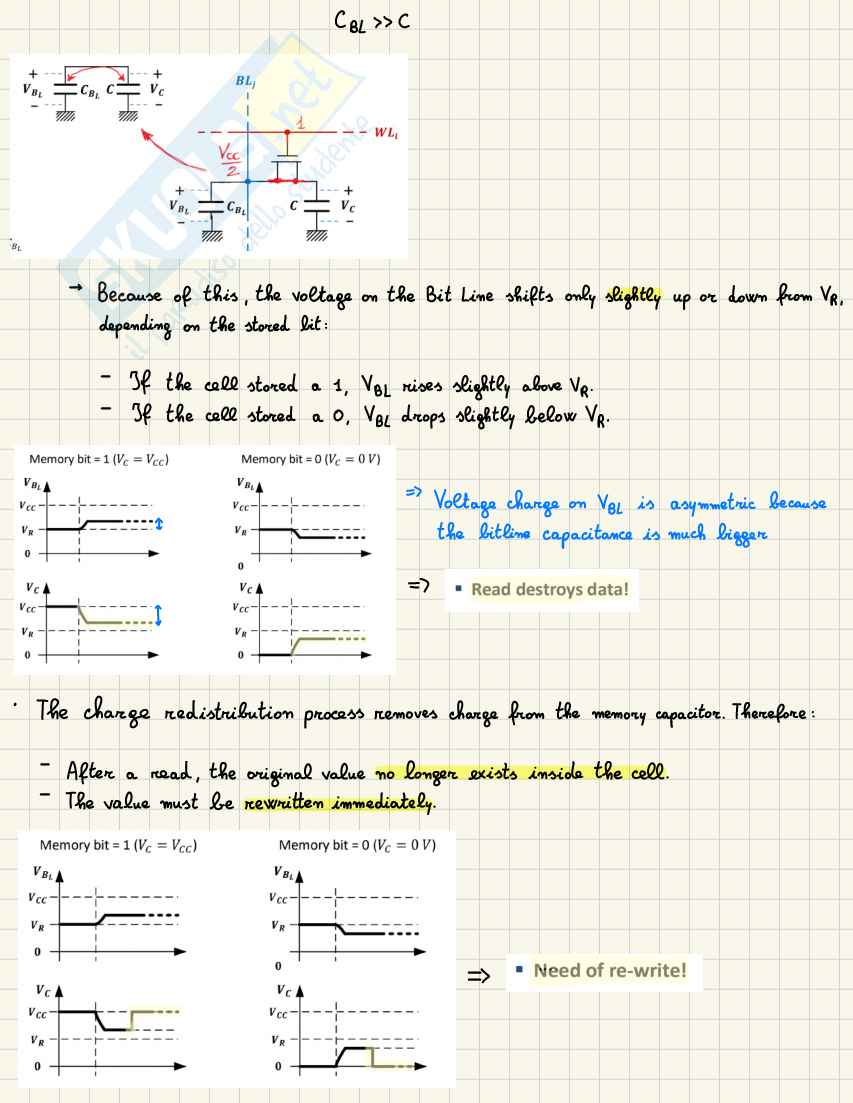 C_BL >> C
+ + 
V_BL C_BL C V_C
− −
BL_j
1
WL_i
V_CC/2
+ +
V_BL C_BL C V_C
− −
BL
SKUOLA.net
il paradiso dello studente
→ Because of this, the voltage on the Bit Line shifts only slightly up or down from V_R,
depending on the stored bit:
- If the cell stored a 1, V_BL rises slightly above V_R.
- If the cell stored a 0, V_BL drops slightly below V_R.
Memory bit = 1 (V_C = V_CC) Memory bit = 0 (V_C = 0 V)
V_BL V_BL
V_CC V_CC
V_R V_R
0 0
=> Voltage charge on V_BL is asymmetric because
the bitline capacitance is much bigger
V_C V_C
V_CC V_CC
V_R V_R
0 0
=> ▪ Read destroys data!
· The charge redistribution process removes charge from the memory capacitor. Therefore:
- After a read, the original value no longer exists inside the cell.
- The value must be rewritten immediately.
Memory bit = 1 (V_C = V_CC) Memory bit = 0 (V_C = 0 V)
V_BL V_BL
V_CC V_CC
V_R V_R
0 0
=> ▪ Need of re-write!
V_C V_C
V_CC V_CC
V_R V_R
0 0